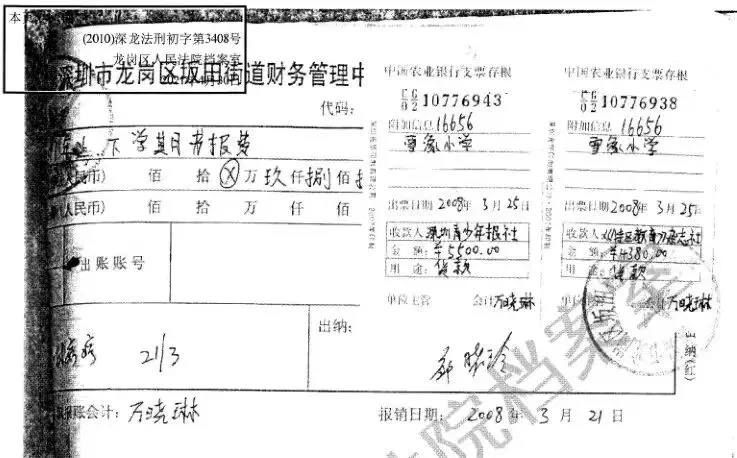 (2010)深龙法刑初字第3408号
龙岗区人民法院档案室
深圳市龙岗区坂田街道财务管理中
代码:
下学期书报费
人民币) 佰 拾 万 玖仟捌佰
人民币) 佰 拾 万 仟 佰
出账账号
出纳:
21/3
账会计: 万晓琳
报销日期: 2008年 3月 21日
中国农业银行支票存根
10776943
附加信息 16656
雪象小学
出票日期 2008年 3月25日
收款人 深圳青少年报社
金额: ¥5500.00
用途: 货款
单位主管 会计 万晓琳
中国农业银行支票存根
10776938
附加信息 16656
雪象小学
出票日期 2008年 3月25日
收款人 特区教育杂志社
金额: ¥4380.00
用途: 货款
会计 万晓琳
出纳(红)
院档案室